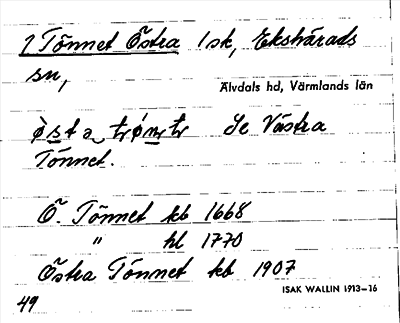 7 Tönnet Östra 1sk, Ekshärads
sn,
Älvdals hd, Värmlands län
Se Västra
Tönnet.
Ö. Tönnet kb 1668
" hl 1770
Östra Tönnet kb 1907
ISAK WALLIN 1913–16
49